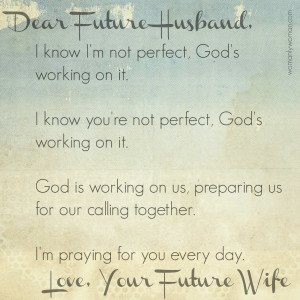 Dear Future Husband,
I know I'm not perfect, God's
working on it.
I know you're not perfect, God's
working on it.
God is working on us, preparing us
for our calling together.
I'm praying for you every day.
Love, Your Future Wife
womanlywoman.com